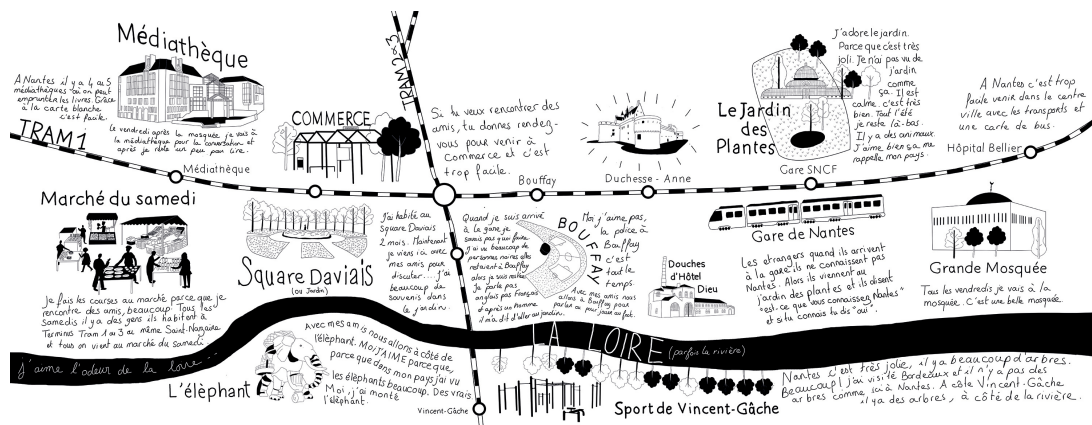 Médiathèque
A Nantes il y a 4 ou 5
médiathèques où on peut
emprunter les livres. Grâce
à la carte blanche
c'est facile.
Le vendredi après la mosquée je vais à
la médiathèque pour la conversation et
après je reste un peu pour lire.
TRAM 1
Médiathèque
COMMERCE
TRAM 2&3
Si tu veux rencontrer des
amis, tu donnes rendez-
vous pour venir à
Commerce et c'est
trop facile.
Bouffay
Duchesse - Anne
Le Jardin
des
Plantes
J'adore le jardin.
Parce que c'est très
joli. Je n'ai pas vu de
jardin
comme
ça. Il est
calme, c'est très
bien. Tout l'été
je reste là-bas.
Il y a des animaux.
J'aime bien ça me
rappelle mon pays.
Gare SNCF
A Nantes c'est trop
facile venir dans le centre
ville avec les transports et
une carte de bus.
Hôpital Bellier
Marché du samedi
Je fais les courses au marché parce que je
rencontre des amis, beaucoup. Tous les
samedis il y a des gens ils habitent à
Terminus Tram 1 ou 3 ou même Saint-Nazaire
et tous on vient au marché du samedi.
Square Daviais
(ou Jardin)
J'ai habité au
Square Daviais
2 mois. Maintenant
je viens ici avec
mes amis pour
discuter... j'ai
beaucoup de
souvenis dans
le jardin.
Quand je suis arrivé
à la gare je
savais pas quoi faire.
J'ai vu beaucoup de
personnes noires elles
restaient à Bouffay
alors je suis resté.
Je parle pas
anglais pas Français
et après un homme
il m'a dit d'aller au jardin.
BOUFFAY
Moi j'aime pas,
la police à
Bouffay
c'est
tout le
temps.
Avec mes amis nous
allons à Bouffay pour
parler ou pour jouer au foot.
Douches
d'Hôtel
Dieu
Gare de Nantes
Les etrangers quand ils arrivent
à la gare ils ne connaissent pas
Nantes. Alors ils viennent au
jardin des plantes et ils disent
"est-ce que vous connaissez Nantes"
et si tu connais tu dis "oui".
Grande Mosquée
Tous les vendredis je vais à la
mosquée. C'est une belle mosquée.
LA LOIRE (parfois la rivière)
j'aime l'odeur de la loire...
L'éléphant
Avec mes amis nous allons à côté de
l'éléphant. Moi J'AIME parce que,
parce que dans mon pays j'ai vu
les éléphants beaucoup. Des vrais.
Moi, j'ai monté
l'éléphant.
Vincent-Gâche
Sport de Vincent-Gâche
Nantes c'est très jolie, il y a beaucoup d'arbres.
Beaucoup! j'ai visité Bordeaux et il n'y a pas des
arbres comme ici à Nantes. A côté Vincent-Gâche
il y a des arbres, à côté de la rivière.